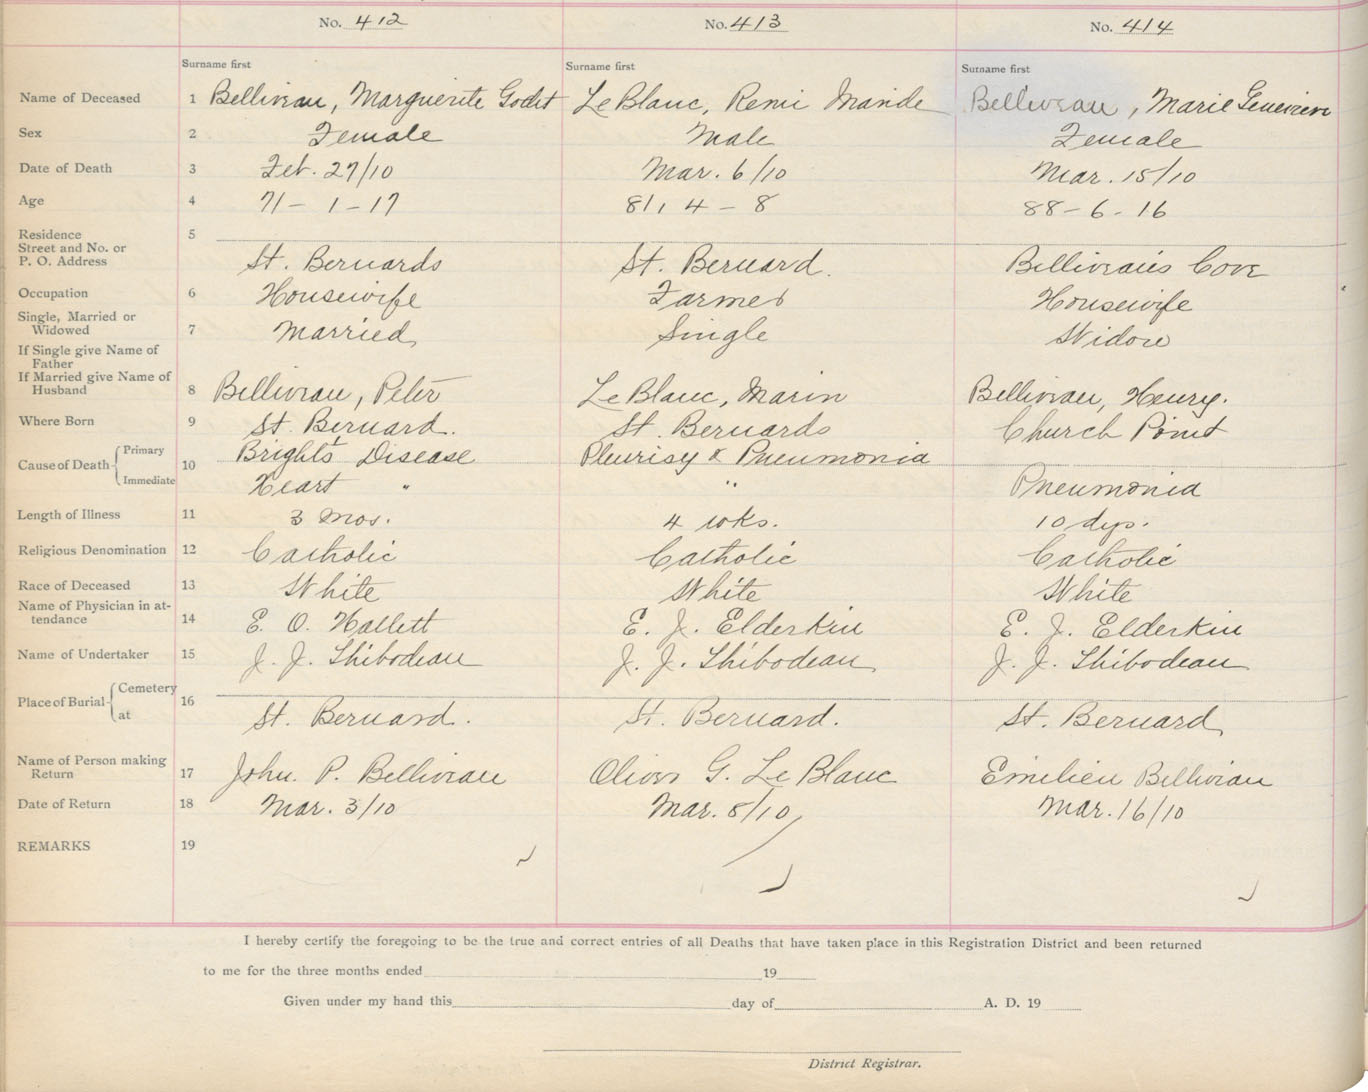 No. 412 No. 413 No. 414
Surname first Surname first Surname first
Name of Deceased 1 Belliveau, Marguerite Godet LeBlanc, Remi Mande Belliveau, Marie Genevieve
Sex 2 Female Male Female
Date of Death 3 Feb. 27/10 Mar. 6/10 Mar. 15/10
Age 4 71 - 1 - 17 81, 4 - 8 88 - 6 - 16
Residence 5
Street and No. or
P. O. Address St. Bernards St. Bernard. Belliveau's Cove
Occupation 6 Housewife Farmer Housewife
Single, Married or
Widowed 7 Married Single Widow
If Single give Name of
Father
If Married give Name of
Husband 8 Belliveau, Peter LeBlanc, Marin Belliveau, Henry.
Where Born 9 St. Bernard. St. Bernards Church Point
Cause of Death Primary 10 Bright's Disease Pleurisy & Pneumonia
Immediate Heart " " Pneumonia
Length of Illness 11 3 mos. 4 wks. 10 dys.
Religious Denomination 12 Catholic Catholic Catholic
Race of Deceased 13 White White White
Name of Physician in at-
tendance 14 E. O. Hallett E. J. Elderkin E. J. Elderkin
Name of Undertaker 15 J. J. Thibodeau J. J. Thibodeau J. J. Thibodeau
Place of Burial Cemetery 16
at St. Bernard. St. Bernard. St. Bernard
Name of Person making
Return 17 John. P. Belliveau G. LeBlanc Emilien Belliveau
Date of Return 18 Mar. 3/10 Mar. 8/10 Mar. 16/10
REMARKS 19
I hereby certify the foregoing to be the true and correct entries of all Deaths that have taken place in this Registration District and been returned
to me for the three months ended 19
Given under my hand this day of A. D. 19
District Registrar.